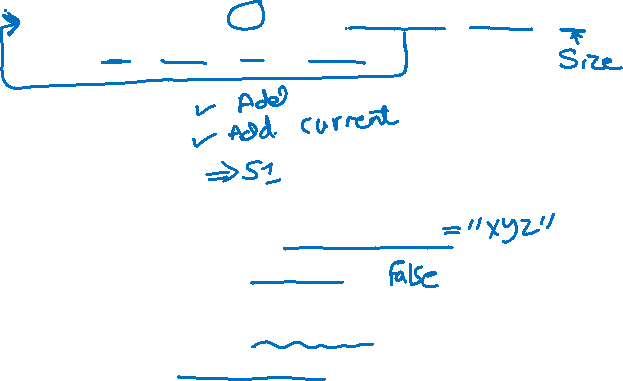 Size
✓ Add
✓ Add current
⇒ S1
= "xyz"
False